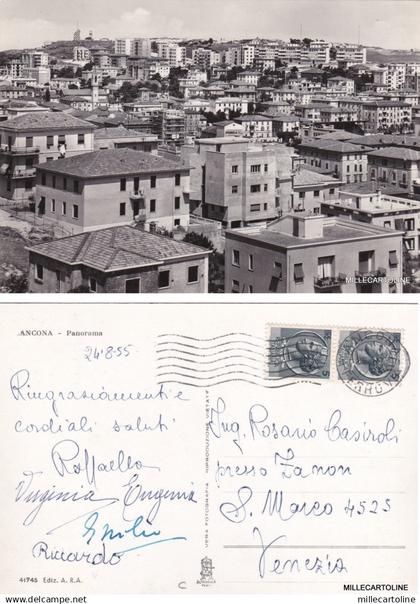 MILLECARTOLINE
ANCONA - Panorama
24-8-55
Ringraziamenti e
cordiali saluti
Raffaella
Virginia Eugenia
Emilio
Riccardo
41746 Ediz. A. R. A.
VERA FOTOGRAFIA - RIPRODUZIONE VIETATA
Ing. Rosario Casiroli
presso Zanon
S. Marco 4525
Venezia
MILLECARTOLINE
millecartoline
millecartoline